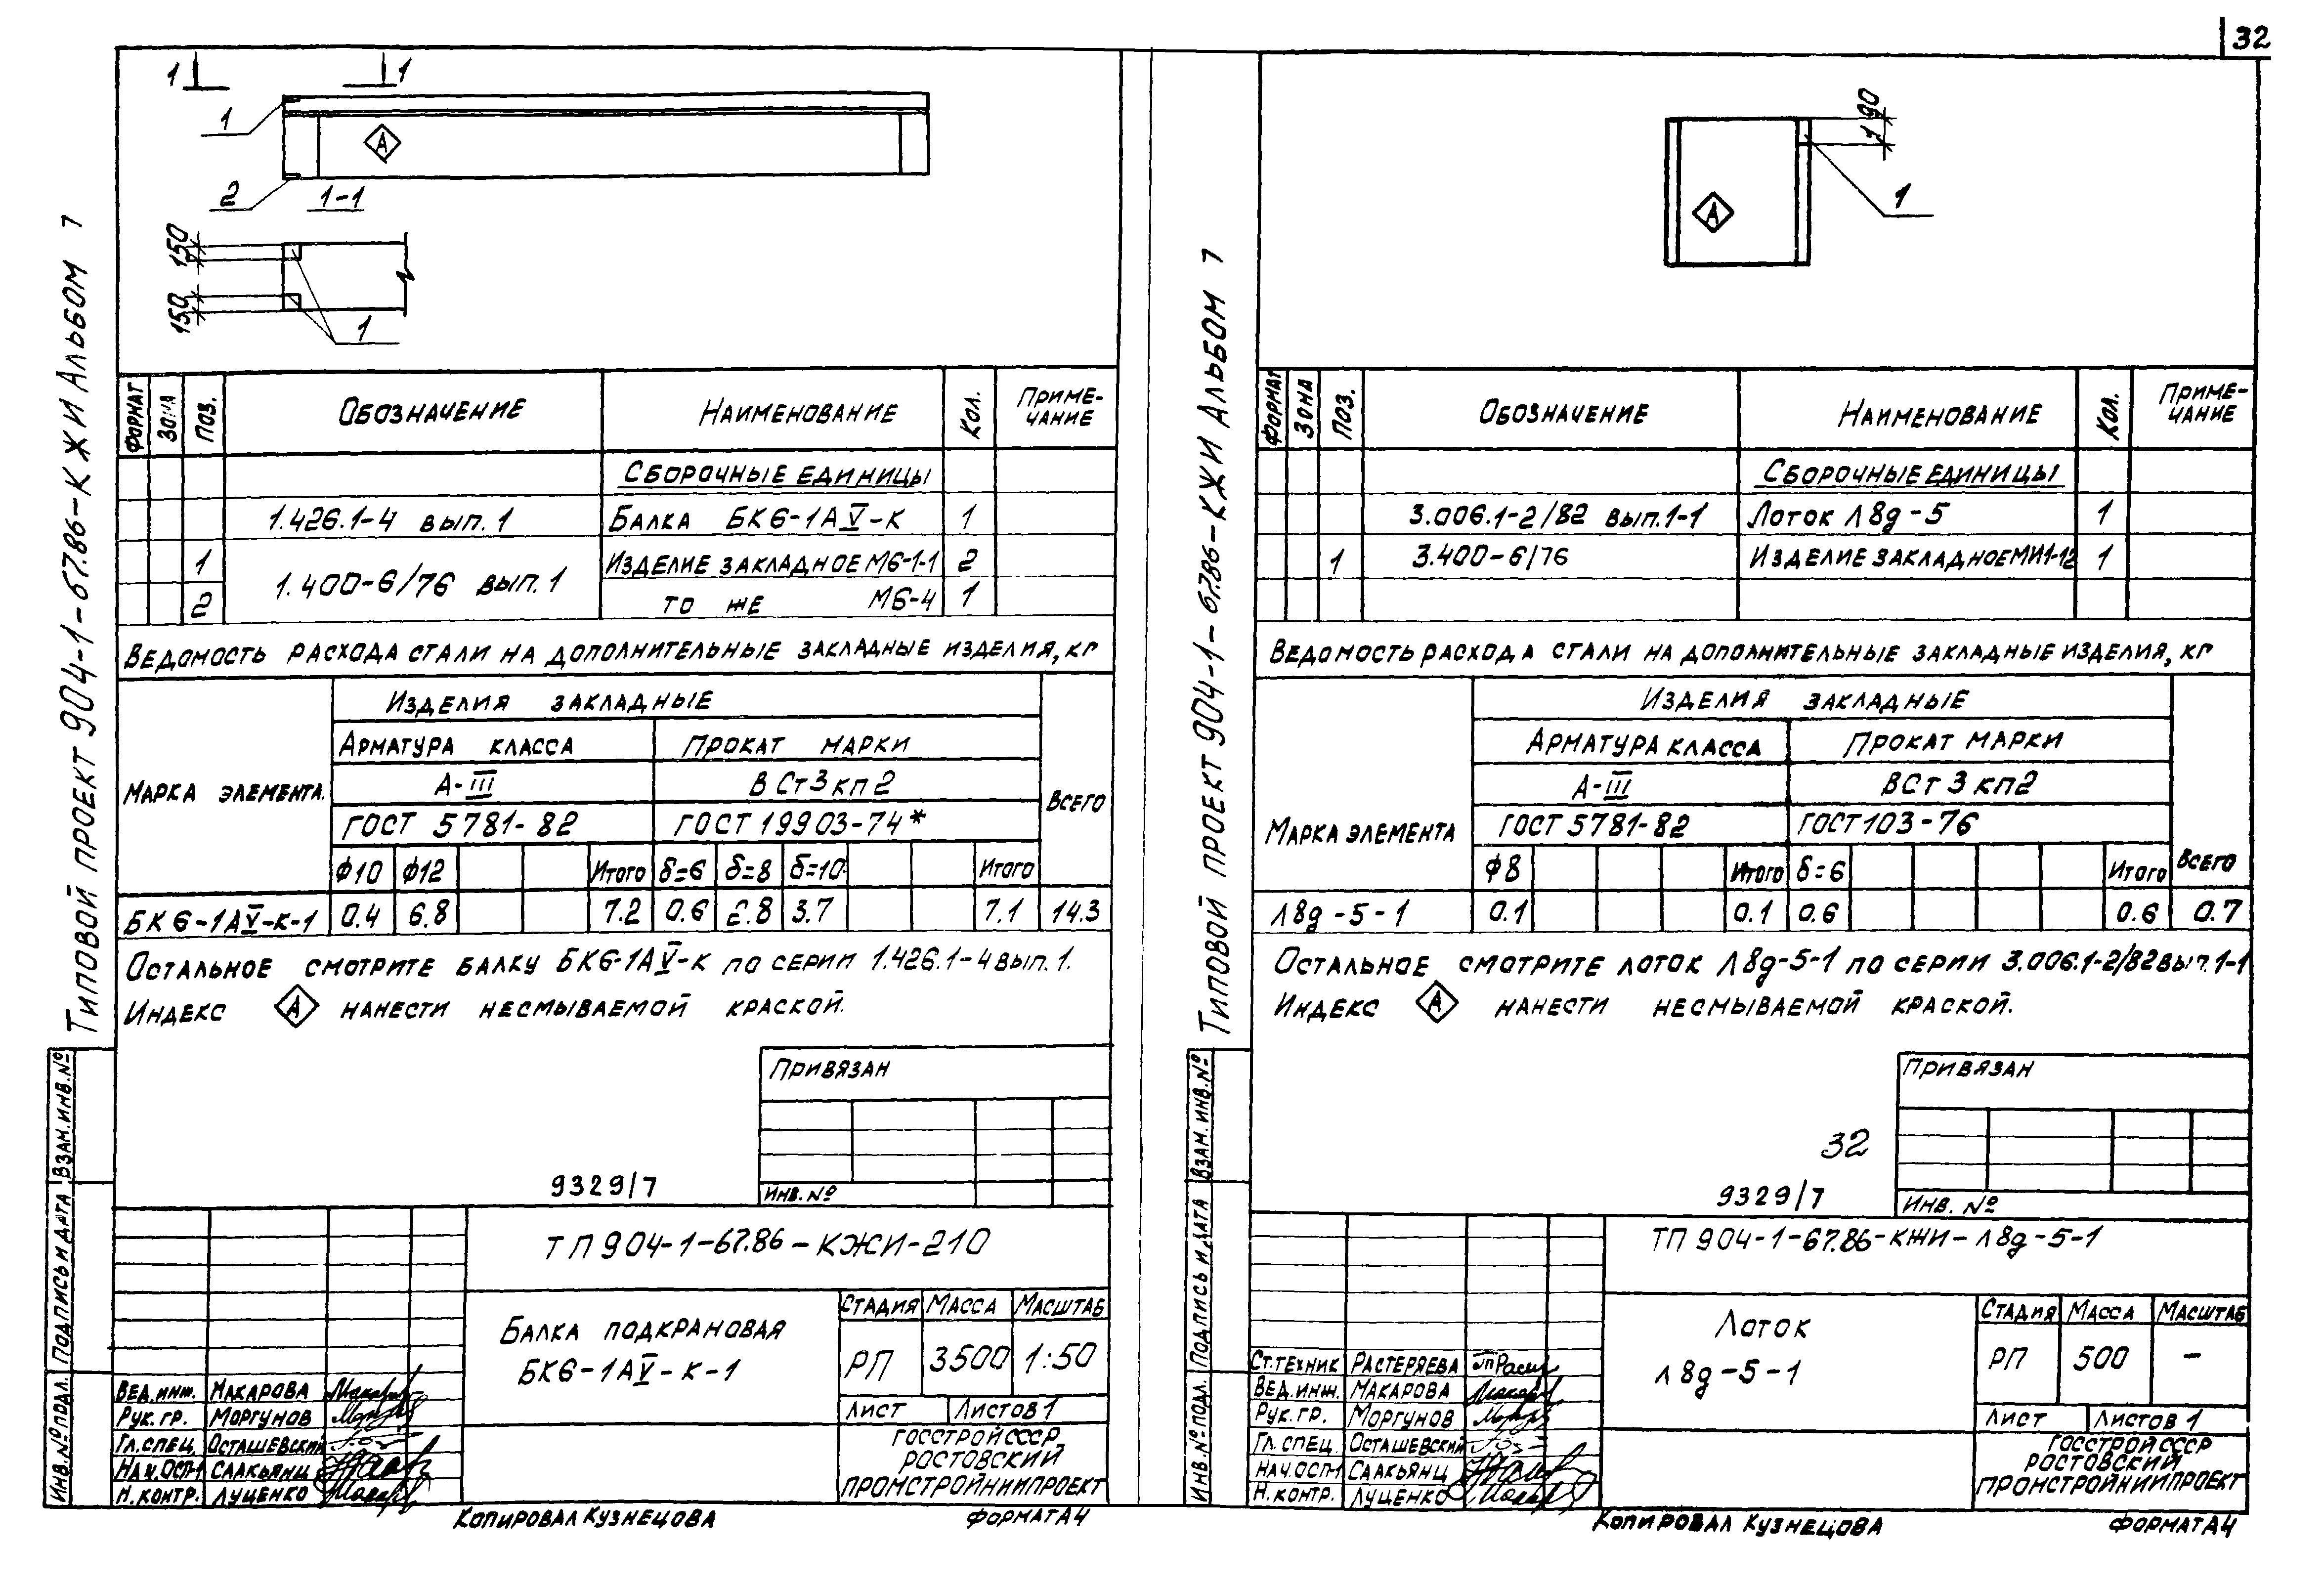 32
Типовой проект 904-1-67.86-КЖИ Альбом 7
1 1
1
А
2
1-1
150
150
1
Формат Зона Поз. Обозначение Наименование Кол. Приме-
чание
Сборочные единицы
1.426.1-4 вып.1 Балка БК6-1АV-К 1
1 Изделие закладное М6-1-1 2
1.400-6/76 вып.1
2 то же М6-4 1
Ведомость расхода стали на дополнительные закладные изделия, кг
Марка элемента Изделия закладные Всего
Арматура класса Прокат марки
А-III ВСт3кп2
ГОСТ 5781-82 ГОСТ 19903-74*
Ф10 Ф12 Итого δ=6 δ=8 δ=10 Итого
БК6-1АV-К-1 0.4 6.8 7.2 0.6 2.8 3.7 7.1 14.3
Остальное смотрите балку БК6-1АV-К по серии 1.426.1-4 вып.1.
Индекс А нанести несмываемой краской.
Привязан
Инв. №
9329/7
ТП 904-1-67.86-КЖИ-210
Балка подкрановая
БК6-1АV-К-1
Стадия Масса Масштаб
РП 3500 1:50
Лист Листов 1
Госстрой СССР
Ростовский
Промстройниипроект
Вед.инж. Макарова
Рук.гр. Моргунов
Гл.спец. Осташевский
Нач.ОСП-1 Саакьянц
Н.контр. Луценко
Взам.инв.№
Подпись и дата
Инв.№подл.
Копировал Кузнецова Формат А4
Типовой проект 904-1-67.86-КЖИ Альбом 7
90
1
1
А
Формат Зона Поз. Обозначение Наименование Кол. Приме-
чание
Сборочные единицы
3.006.1-2/82 вып.1-1 Лоток Л8д-5 1
1 3.400-6/76 Изделие закладное МИ1-12 1
Ведомость расхода стали на дополнительные закладные изделия, кг
Марка элемента Изделия закладные Всего
Арматура класса Прокат марки
А-III ВСт3кп2
ГОСТ 5781-82 ГОСТ 103-76
Ф8 Итого δ=6 Итого
Л8д-5-1 0.1 0.1 0.6 0.6 0.7
Остальное смотрите лоток Л8д-5-1 по серии 3.006.1-2/82 вып.1-1
Индекс А нанести несмываемой краской.
Привязан
32
Инв. №
9329/7
ТП 904-1-67.86-КЖИ-Л8д-5-1
Лоток
Л8д-5-1
Стадия Масса Масштаб
РП 500 —
Лист Листов 1
Госстрой СССР
Ростовский
Промстройниипроект
Ст.техник Растеряева
Вед.инж. Макарова
Рук.гр. Моргунов
Гл.спец. Осташевский
Нач.ОСП-1 Саакьянц
Н.контр. Луценко
Взам.инв.№
Подпись и дата
Инв.№подл.
Копировал Кузнецова Формат А4